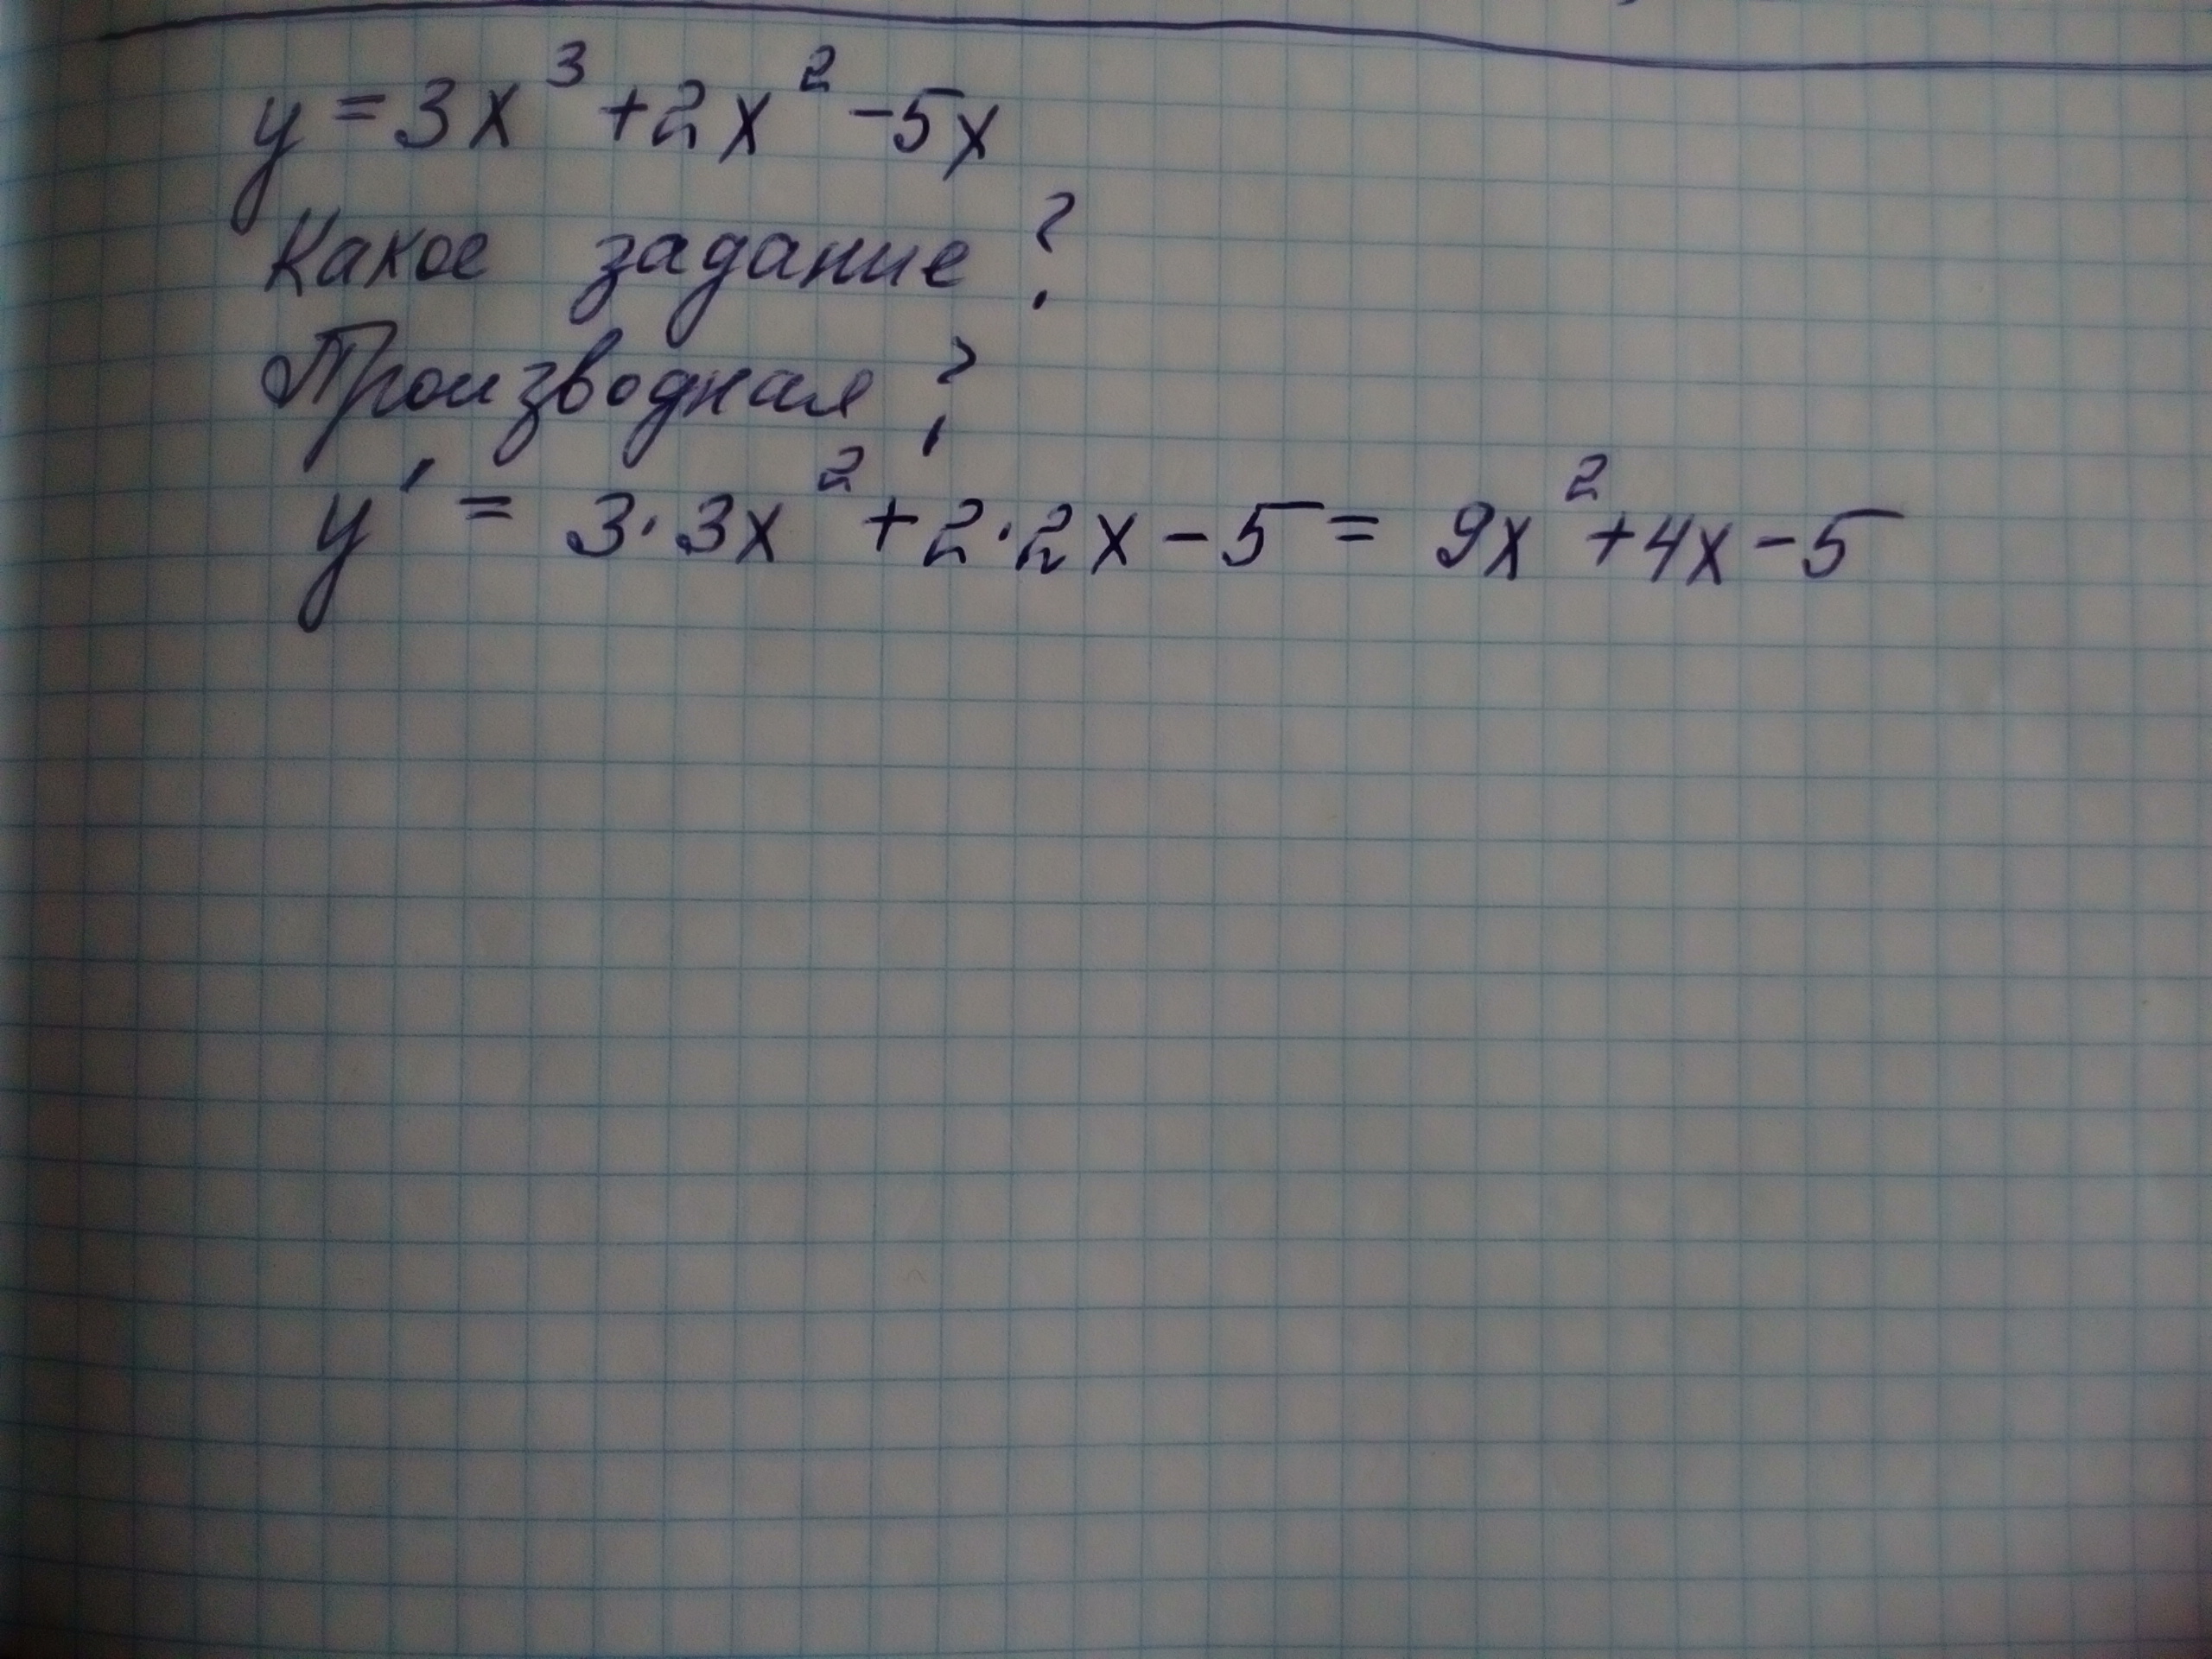 y = 3x³ + 2x² - 5x
Какое задание?
Производная?
y' = 3·3x² + 2·2x - 5 = 9x² + 4x - 5